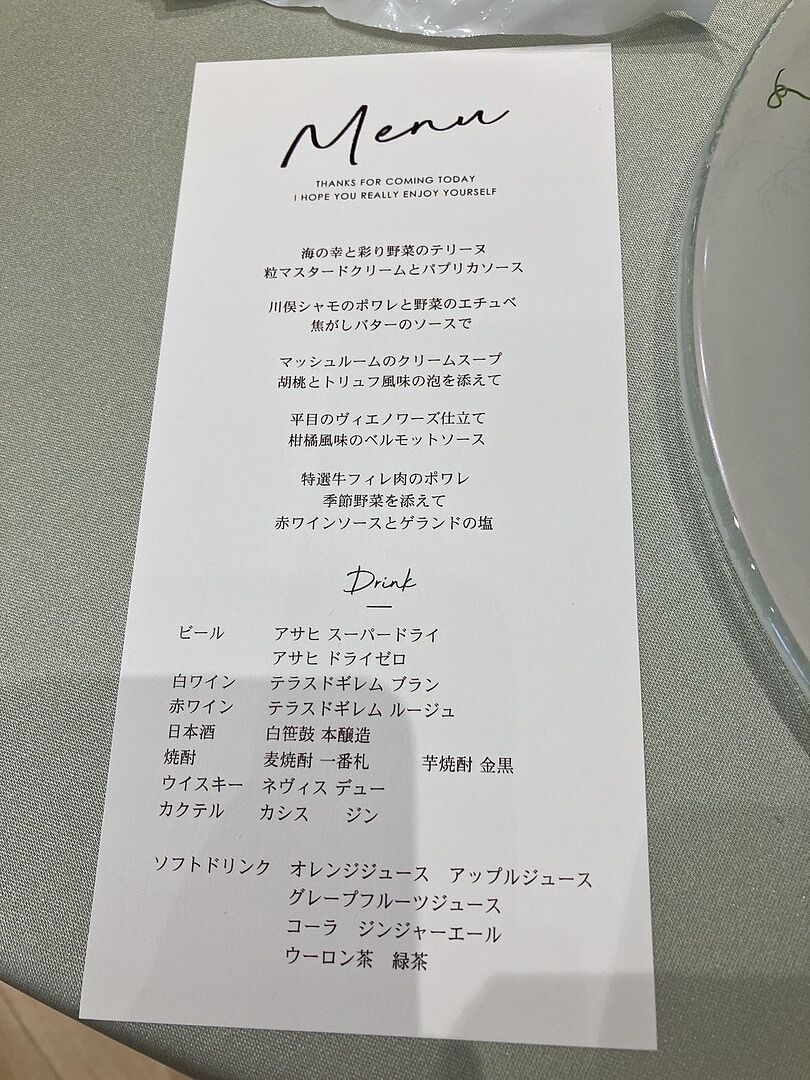 Menu
THANKS FOR COMING TODAY
I HOPE YOU REALLY ENJOY YOURSELF
海の幸と彩り野菜のテリーヌ
粒マスタードクリームとパプリカソース
川俣シャモのポワレと野菜のエチュベ
焦がしバターのソースで
マッシュルームのクリームスープ
胡桃とトリュフ風味の泡を添えて
平目のヴィエノワーズ仕立て
柑橘風味のベルモットソース
特選牛フィレ肉のポワレ
季節野菜を添えて
赤ワインソースとゲランドの塩
Drink
ビール アサヒ スーパードライ
アサヒ ドライゼロ
白ワイン テラスドギレム ブラン
赤ワイン テラスドギレム ルージュ
日本酒 白笹鼓 本醸造
焼酎 麦焼酎 一番札 芋焼酎 金黒
ウイスキー ネヴィス デュー
カクテル カシス ジン
ソフトドリンク オレンジジュース アップルジュース
グレープフルーツジュース
コーラ ジンジャーエール
ウーロン茶 緑茶